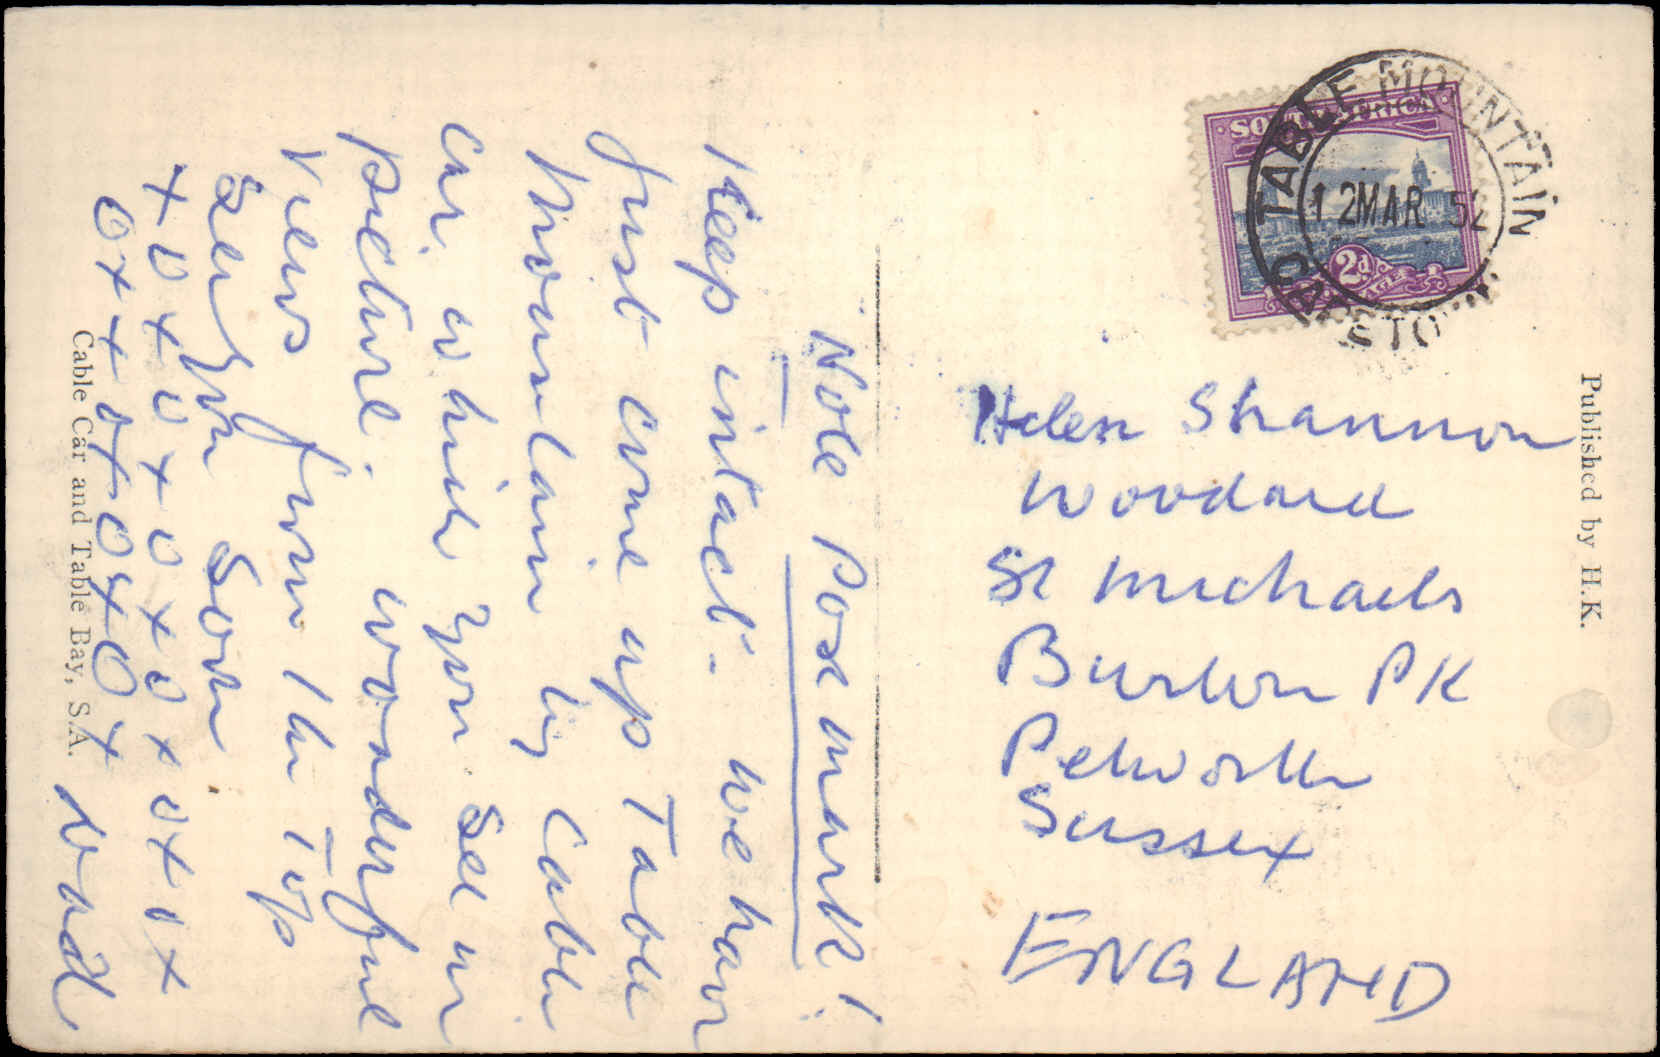 Note Post mark!
Keep intact. we have
Just come up Table
Mountain by Cable
Car which you see in
picture. wonderful
views from the Top
See you soon
x o x o x o x o x ox ox
oxxoxoxox Dad
Cable Car and Table Bay, S.A.
SOUTH AFRICA
2d
TABLE MOUNTAIN
12 MAR 52
Helen Shannon
Woodard
St Michaels
Burton PK
Petworth
Sussex
ENGLAND
Published by H.K.